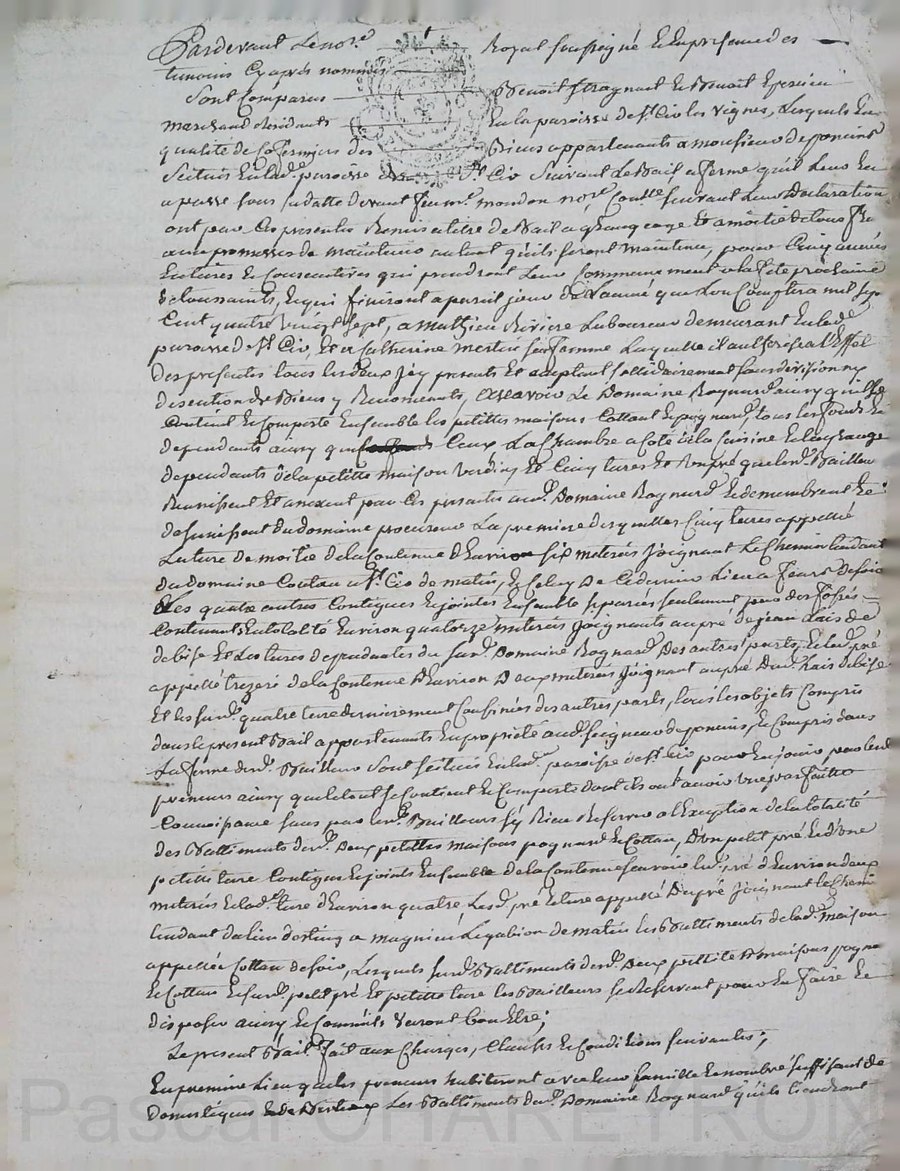 Pardevant Le no.re Royal soussigné Et En presence des
temoins Cy après nommés
Sont Comparus Benoit Et Benoit
marchand Résidants En la paroisse de S.t Cir les vignes, Lesquels En
qualité de Cofermiers des Biens appartenants a monsieur de poncins
Scitués En lad.e paroisse de S.t Cir Suivant Le Bail a ferme qu'il Leur En
a passé sous sa datte devant feu m.e mondon no.re Suivant Leur Declaration
ont par Ces presentes Remis a titre de Bail a grangeage Et a moitié de tous fruits
avec promesse de maintenir autant qu'ils seront maintenu, pour Cinq années
Entieres Et Consecutives qui prendront Leur Commencement a la fete prochaine
de toussaints, Et qui finiront a pareil jour de L'année que L'on Comptera mil sept
Cent quatre vingt sept, a Mathieu Riviere Laboureur demeurant En lad.e
paroisse de S.t Cir, Et a Catherine sa femme Laquelle il authorise a L'Effet
des presentes tous les deux Icy presents Et acceptant sollidairement sans division ny
discution de Biens y Renoncants, a Scavoir Le Domaine Rognard ainsy qu'il se
Contient Et Comporte Ensemble les petittes maisons Cottant Et Rognard, tous les fonds En
dependants ainsy que Ceux La Chambre a Coté de la Cuisine Et la grange
dependants de la petitte maison Et Cinq terres Et Un pré que les d. Bailleurs
Reunissent Et annexent par Ces presentes aud. Domaine Rognard Et demembrent Et
desunissent du domaine La premiere desquelles Cinq terres appellée
La terre de moitié de la Contenue d'Environ six meterés Joignant Le Chemin tendant
du Domaine Cottan a S.t Cir de matin, Et Celuy De a Feurs de soir
Les quatre autres Contigues Et jointes Ensemble separées seulement par des fossés
Contenant En totalité Environ quatorze meterés Joignants au pré de jean Lais de
de bise Et Les terres dependantes du susd. Domaine Rognard Des autres parts, Et led. pré
appellé de la Contenue d'Environ Deux meterés Joignant au pré Dud. Lais de bise
Et les susd. quatre terre dernierement Confinées des autres parts, tous les objets Compris
dans le present Bail appartenants En propriété aud. seigneur de poncins, Et Compris dans
La ferme desd. Bailleurs Sont scitués En lad. paroisse de S.t Cir pour En jouir par lesd.
preneurs ainsy que le tout se Contient Et Comporte dont ils ont avoir Une parfaitte
Connoissance sans par lesd. Bailleurs s'y Rien Reserver a l'Exception de la totalité
des Battiments desd. Deux petittes maisons Rognard Et Cottan, D'un petit pré Et d'Une
petitte terre Contigus Et joints Ensemble de la Contenue scavoir led. pré d'Environ deux
meterés Et lad.e terre d'Environ quatre, Lesd. pré Et terre appellés Dupré Joignant le Chemin
tendant du lieu a magnieu Le gabion de matin les Battiments de lad. maison
appellée Cottan de soir, Lesquels susd. Battiments desd. Deux petitte maisons Rognard
Et Cottan Et susd. petit pré Et petitte terre les Bailleurs se Reservent pour En faire Et
disposer ainsy Et Comme ils verront bon Etre;
Le present Bail fait aux Charges, Clauses Et Conditions suivantes;
En premier Lieu que les preneurs habiteront avec leur famille Et nombre suffisant de
domestiques Les Battiments dud. Domaine Rognard qu'ils tiendront
Pascal CHAREYRON